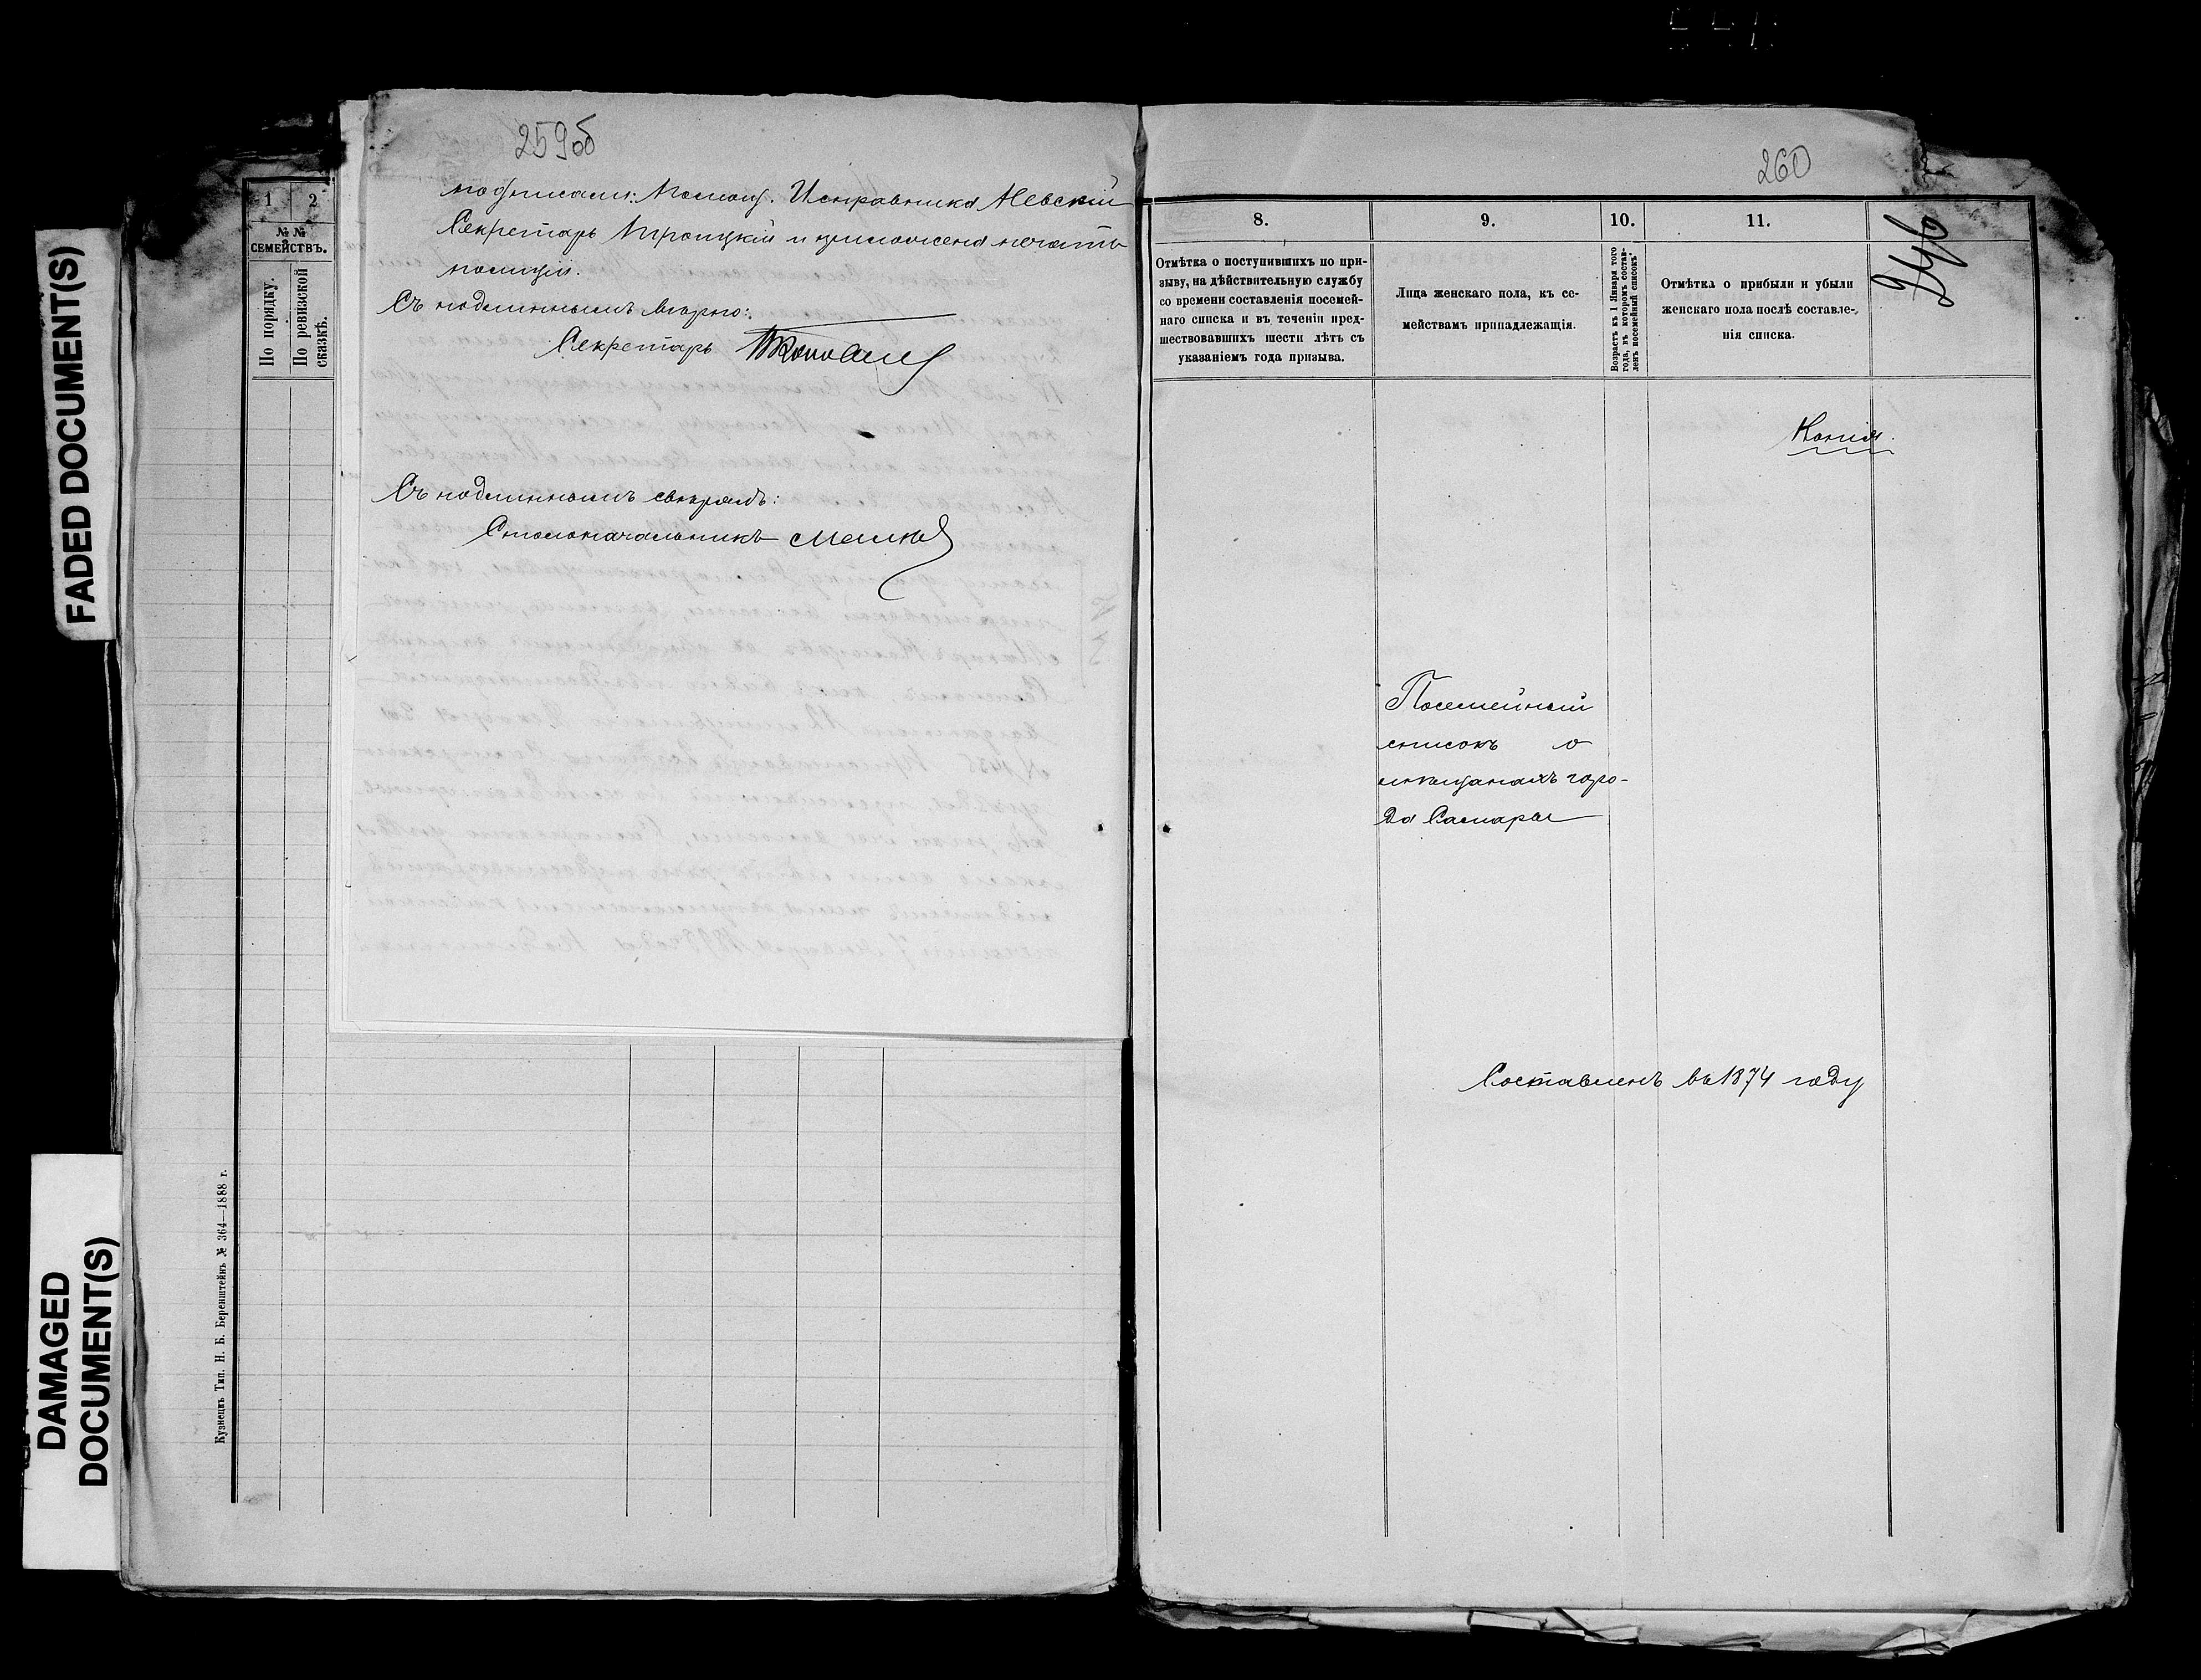 FADED DOCUMENT(S)
DAMAGED
DOCUMENT(S)
259об
1
2
№ №
СЕМЕЙСТВЪ.
По порядку.
По ревизской
сказкѣ.
подписали: Помощ. Исправника Невскій
Секретарь Троицкій и приложена печать
полиціи.
Съ подлиннымъ вѣрно:
Секретарь
Съ подлиннымъ свѣрялъ:
Столоначальникъ
Кузнецкъ Тип. Н. Б. Беренштейнъ № 364—1888 г.
260
8.
9.
10.
11.
Отмѣтка о поступившихъ по при-
зыву, на дѣйствительную службу
со времени составленія посемей-
наго списка и въ теченіи пред-
шествовавшихъ шести лѣтъ съ
указаніемъ года призыва.
Лица женскаго пола, къ се-
мействамъ принадлежащія.
Возрастъ къ 1 Января того
года, въ которомъ состав-
ленъ посемейный списокъ
Отмѣтка о прибыли и убыли
женскаго пола послѣ составле-
нія списка.
Копія.
Посемейный
списокъ о
мѣщанахъ горо-
да Самары
Составленъ въ 1874 году